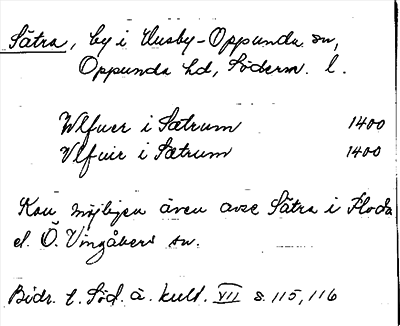 Sätra, by i Husby-Oppunda sn,
Oppunda hd, Söderm. l.
Wlfuer i Sætrum 1400
Vlfuir i Sætrum 1400
Kan möjligen även avse Sätra i Floda
el. Ö. Vingåkers sn.
Bidr. t. Söd. ä. kult. VII s. 115, 116